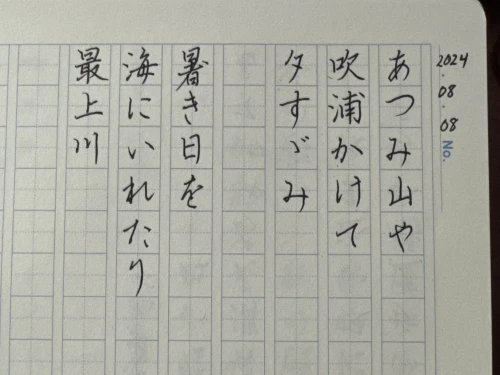 2024.08.08
No.
あつみ山や
吹浦かけて
夕すゞみ
暑き日を
海にいれたり
最上川